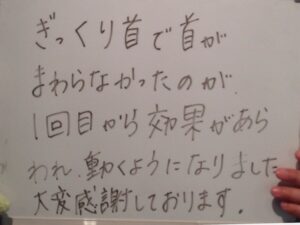 ぎっくり首で首が
まわらなかったのが、
1回目から効果があら
われ、動くようになりました
大変感謝しております。